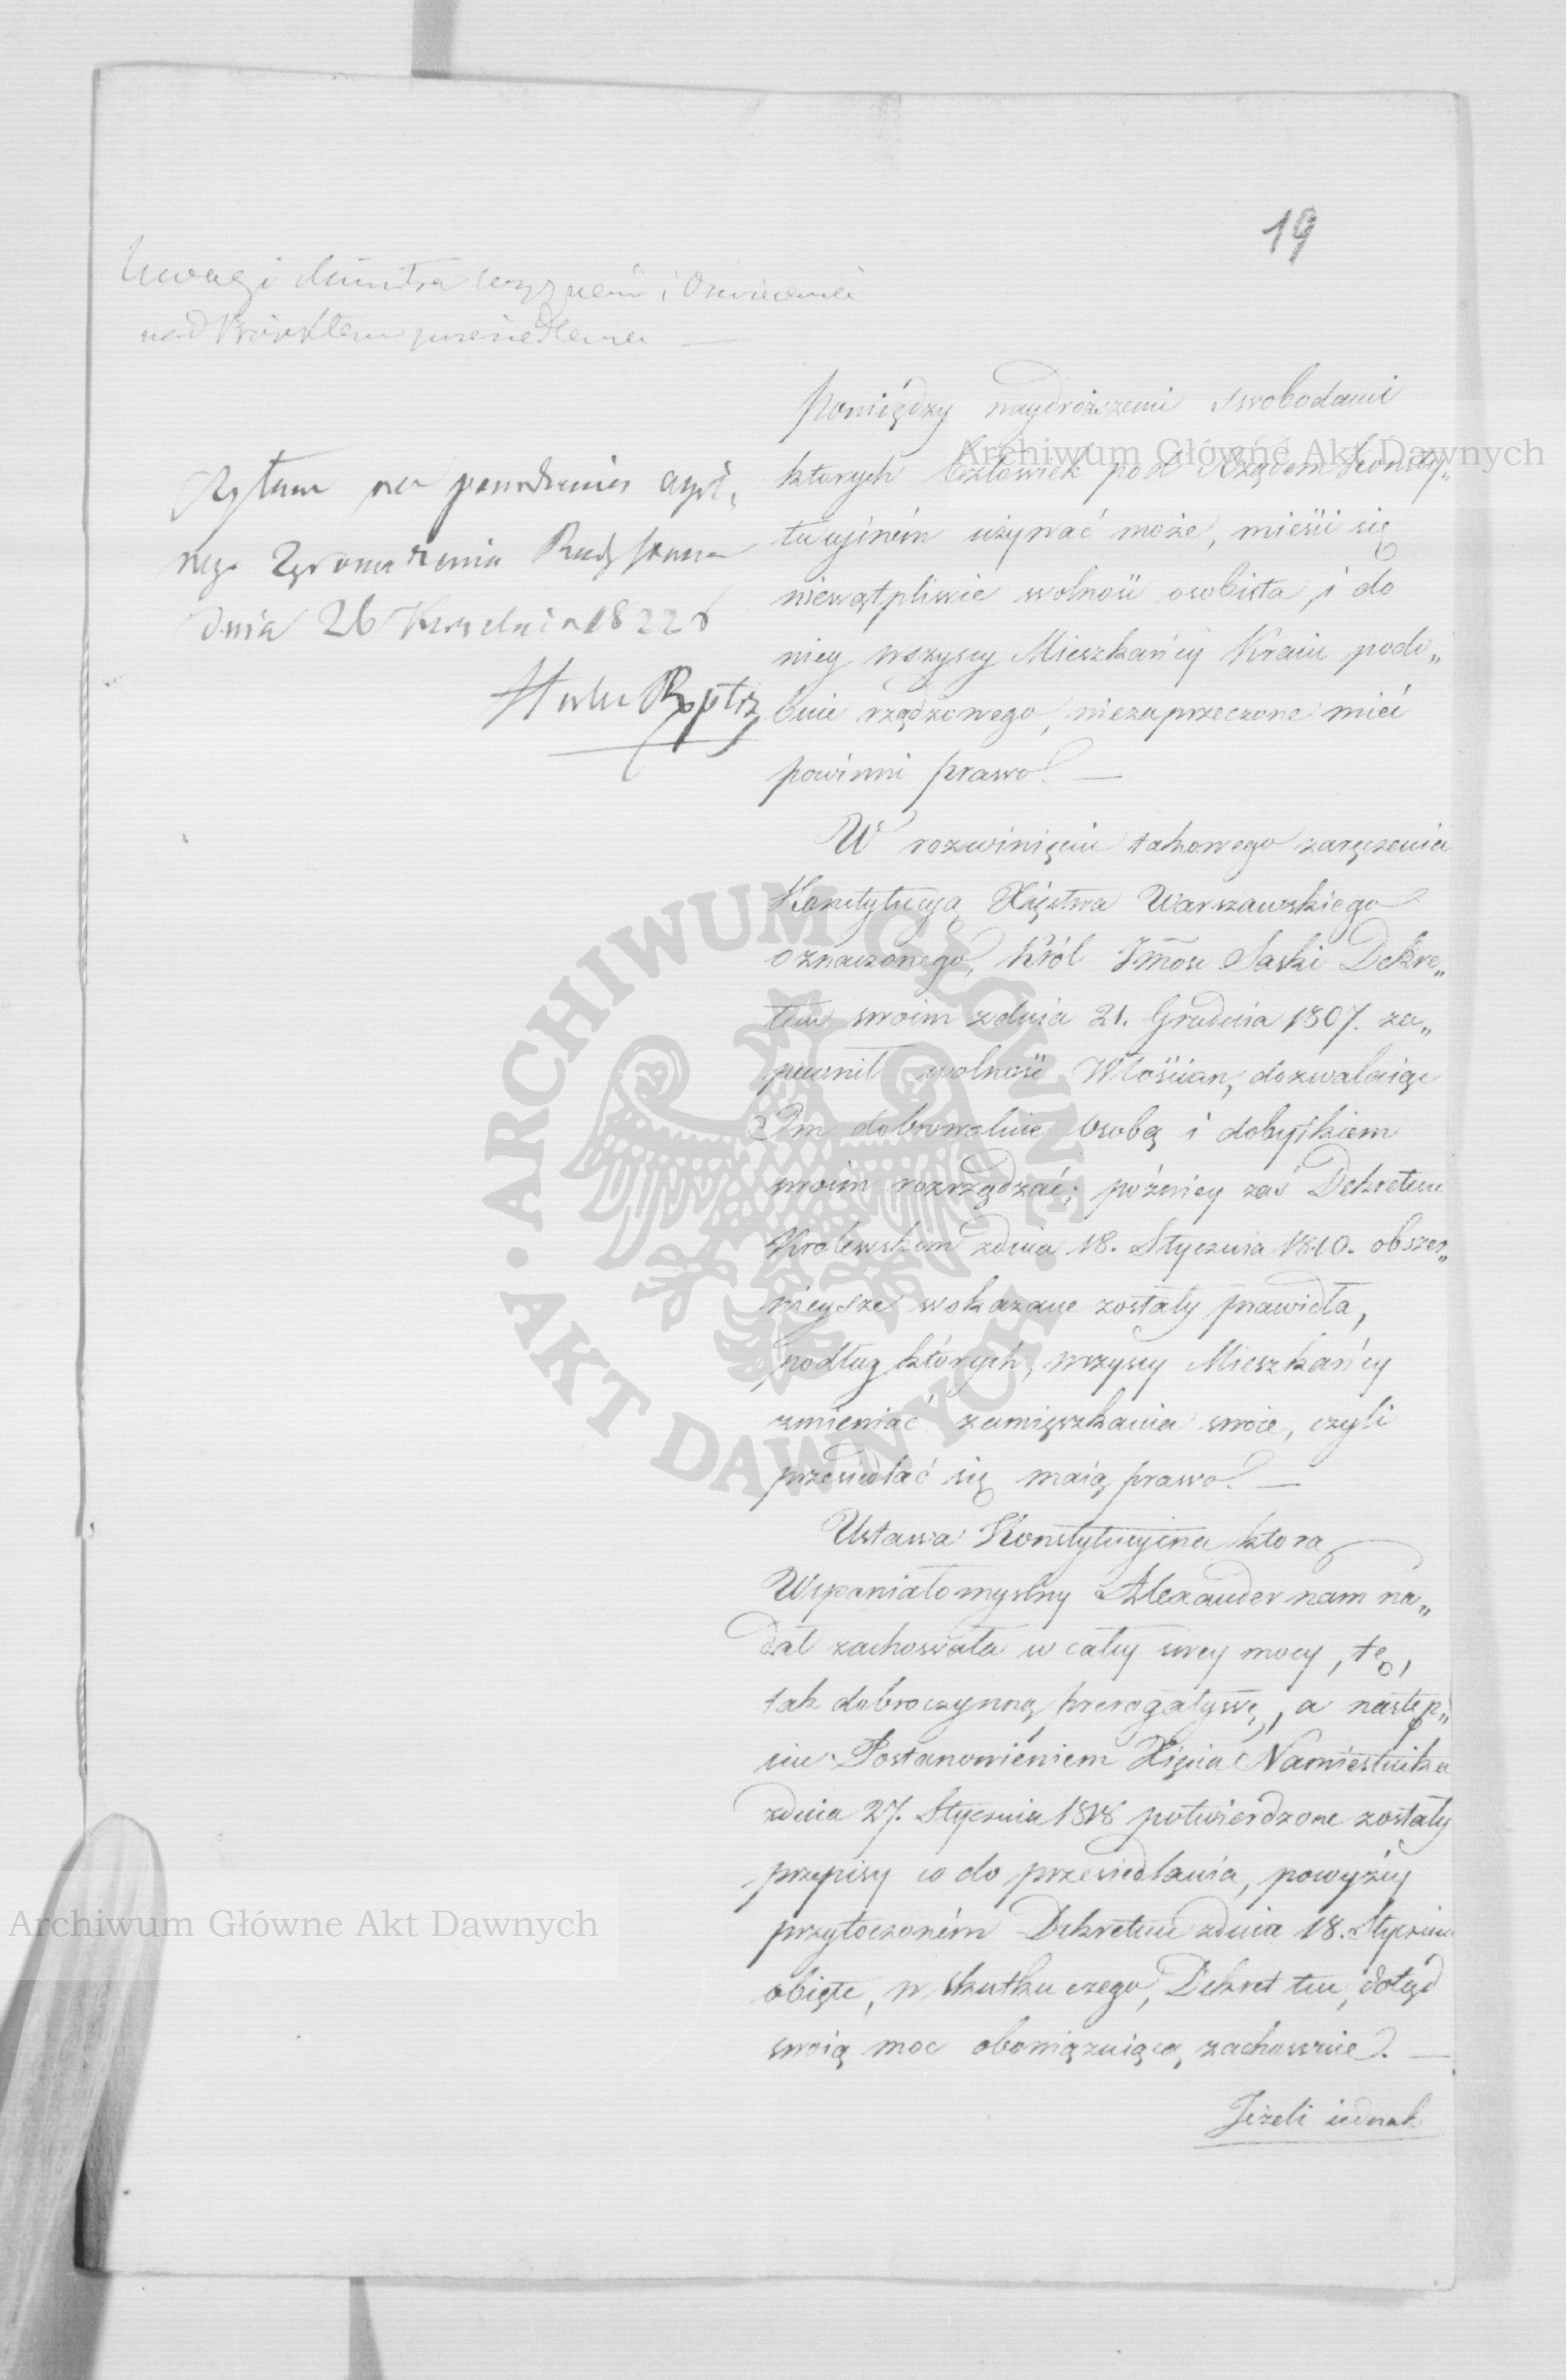 19
Uwagi Ministra wyznań i Oswiecenia
nad Proiektem przesiedlenia —
Czytano na posiedzeniu ogól,
nego Zgromadzenia Rady Stanu
dnia 26 Kwietnia 1822 r
Pomiędzy naydroższemi swobodami
ktorych Człowiek pod Rządem Konsty„
tucyinem używać może, mieści się
niewątpliwie wolność osobista, i do
niey wszyscy Mieszkańcy Kraiu podo„
bnie rządzonego, niezaprzeczone mieć
powinni prawo. —
W rozwinięciu takowego zaręczenia
Konstytucyą Xięstwa Warszawskiego
oznaczonego, Król Jmość Saski Dekre„
tem swoim zdnia 21. Grudnia 1807. za„
pewnił wolność Włościan, dozwalaiąc
Im dobrowolnie osobą i dobytkiem
swoim rozrządzać; poźniey zaś Dekretem
Krolewskim zdnia 18. Stycznia 1810. obszer„
nieysze wskazane zostały prawidła,
podług których, wszyscy Mieszkańcy
zmieniać zamięszkania swoie, czyli
przesiedlać się maią prawo. —
Ustawa Konstytucyina ktorą
Wspaniałomyslny Alexander nam na„
dał zachowała w całey swey mocy, tę,
tak dobroczynną prerogatywę, a następ„
nie Postanowieniem Xięcia Namiestnika
zdnia 27. Stycznia 1818 potwierdzone zostały
przepisy co do przesiedlania, powyżey
przytoczoném Dekretem zdnia 18. Stycznia
obięte, w skutku czego, Dekret ten, dotąd
swoią moc obowiązuiącą zachowuie. —
Jeżeli iednak
Archiwum Główne Akt Dawnych
ARCHIWUM GŁÓWNE • AKT DAWNYCH •
Archiwum Główne Akt Dawnych